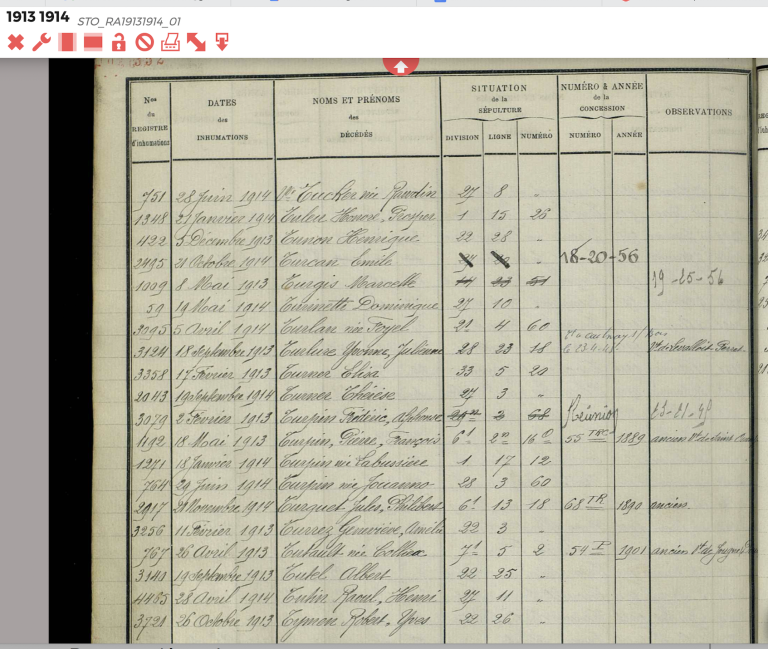 1913 1914 STO_RA19131914_01
Nos du REGISTRE d'inhumations
DATES des INHUMATIONS
NOMS ET PRÉNOMS des DÉCÉDÉS
SITUATION de la SÉPULTURE
DIVISION LIGNE NUMÉRO
NUMÉRO & ANNÉE de la CONCESSION
NUMÉRO ANNÉE
OBSERVATIONS
751 28 Juin 1914 Vve Tucker née 27 8 "
1348 21 Janvier 1914 Tuleu Honoré, Prosper 1 15 26
422 5 Décembre 1913 Tunon Henrique 22 28 "
2495 21 Octobre 1914 Turcan Emile 18-20-56
1009 8 Mai 1913 Turgis Marcelle 23 51 19-25-56
59 19 Mai 1914 Turinetti Dominique 27 10 "
3095 5 Avril 1914 Turlan née 4 60
3124 18 Septembre 1913 Turlure Yvonne, Julienne 28 23 18 Vt de Levallois-Perret
3358 17 Février 1913 Turner Elisa 33 5 20
2043 19 Septembre 1914 Turner Thérèse 27 3 "
3079 2 Février 1913 Turpin Frédéric, Alphonse 2 68 Réunion
1192 18 Mai 1913 Turpin, Pierre, François 6 16 55 1889 ancien
1271 18 Janvier 1914 Turpin née Labussière 1 17 12
764 29 Juin 1914 Turpin née Jouanno 28 3 60
2917 21 Novembre 1914 Turquet Jules, Philibert 6 13 18 68 TR 1890 ancien
3256 11 Février 1913 Turrez Geneviève, Amélie 22 3 "
767 26 Avril 1913 Tutault née Collux 7 5 2 54 P 1901 ancien
3140 19 Septembre 1913 Tutel Albert 22 25 "
4465 28 Avril 1914 Tutin Raoul, Henri 27 11 "
3721 26 Octobre 1913 Tymen Robert, Yves 22 26 "